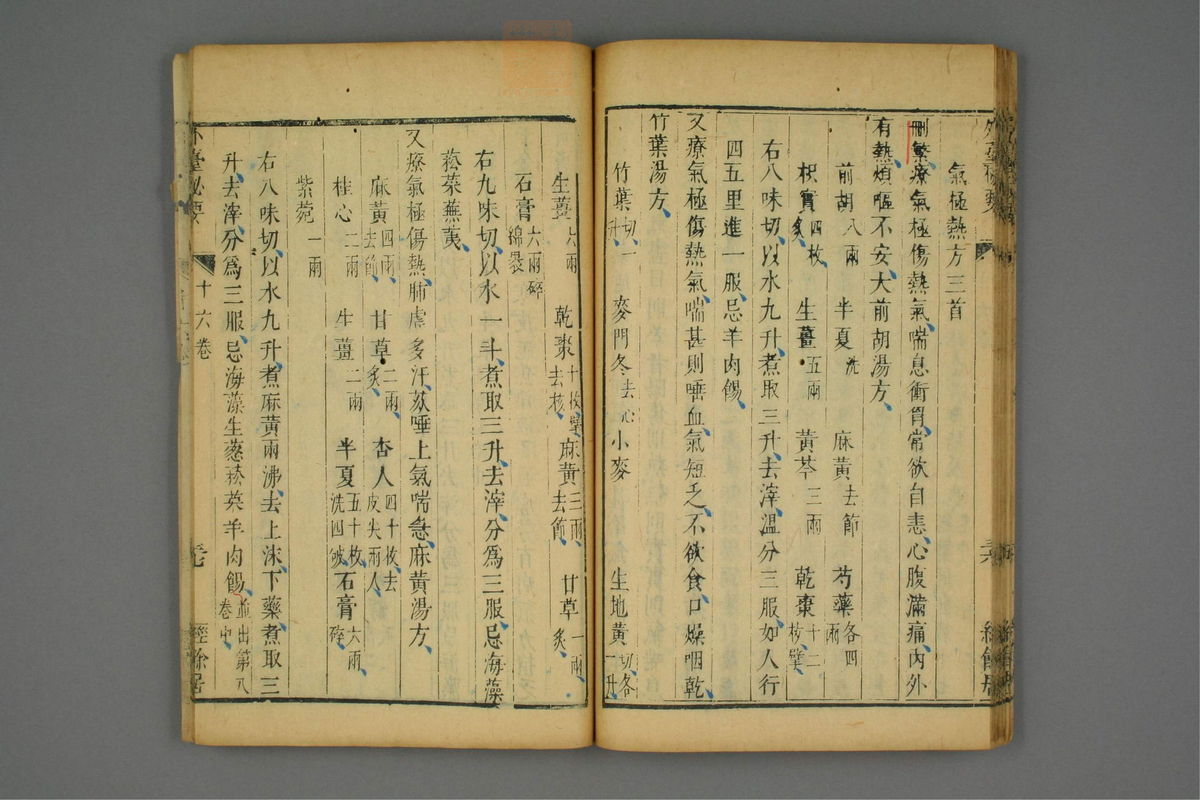 氣極熱方三首
刪繁療氣極傷熱氣喘息衝胷常欲自恚心腹滿痛內外
有熱煩嘔不安大前胡湯方
前胡八兩 半夏洗 麻黃去節 芍藥各四兩
枳實四枚炙 生薑五兩 黃芩三兩 乾棗十二枚擘
右八味切以水九升煮取三升去滓溫分三服如人行
四五里進一服忌羊肉餳
又療氣極傷熱氣喘甚則唾血氣短乏不欲食口燥咽乾
竹葉湯方
竹葉切一升 麥門冬去心 小麥 生地黃切各一升
生薑六兩 乾棗十枚擘去核 麻黃三兩去節 甘草一兩炙
石膏六兩碎綿裹
右九味切以水一斗煮取三升去滓分爲三服忌海藻
菘菜蕪荑
又療氣極傷熱肺虛多汗欬唾上氣喘急麻黃湯方
麻黃四兩去節 甘草二兩炙 杏人四十枚去皮尖兩人
桂心二兩 生薑二兩 半夏五十枚洗四破 石膏六兩碎
紫菀一兩
右八味切以水九升煮麻黃兩沸去上沫下藥煮取三
升去滓分爲三服忌海藻生葱菘菜羊肉餳並出第八卷中
外臺秘要 十六卷 經餘居